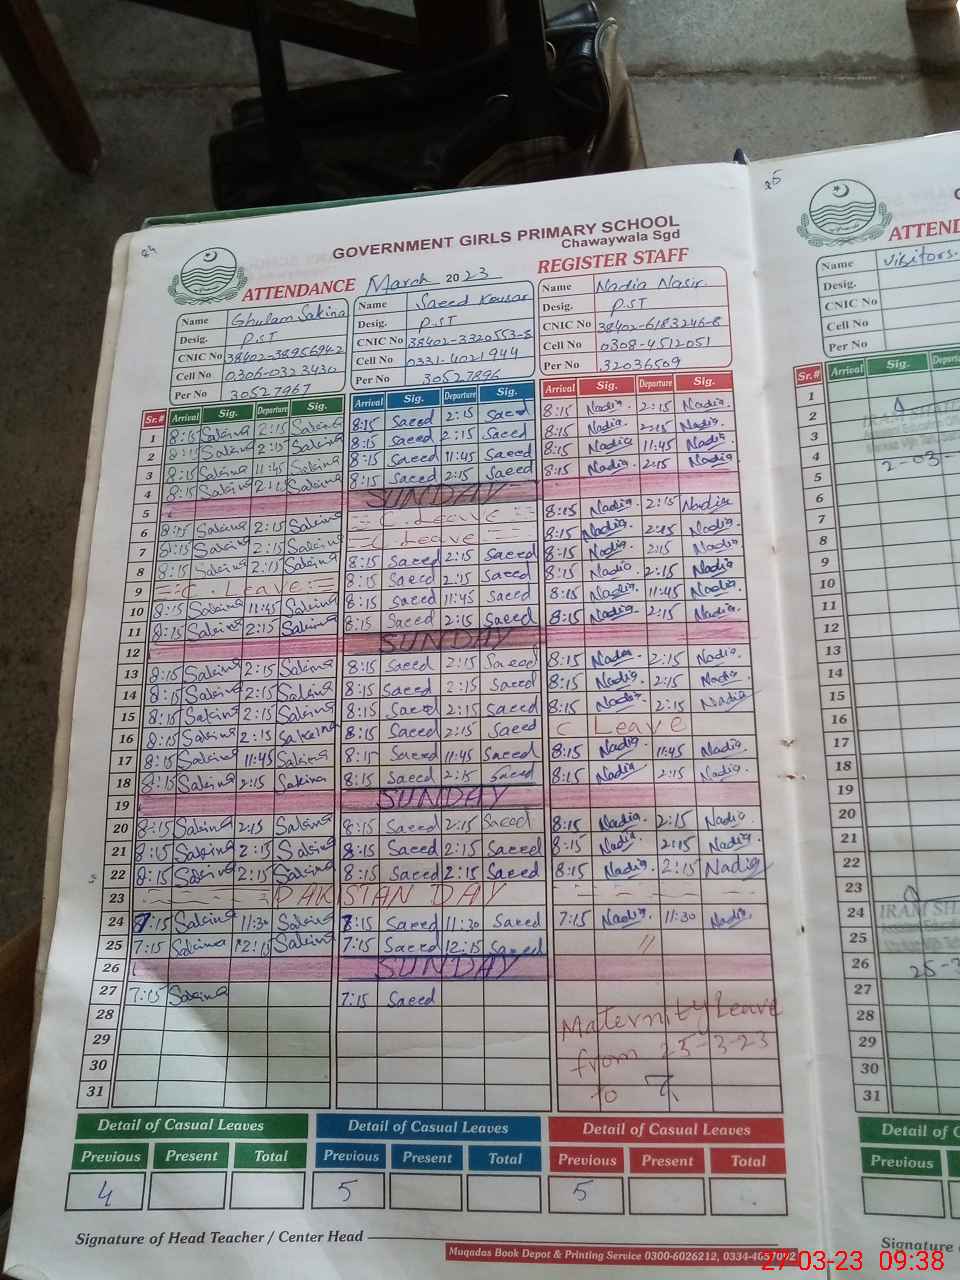 24
GOVERNMENT GIRLS PRIMARY SCHOOL
Chawaywala Sgd
ATTENDANCE March 2023 REGISTER STAFF
Name Ghulam Sakina
Desig. P.ST
CNIC No 38402-3895694-2
Cell No 0306-0323430
Per No 30527967
Name Saeed Kousar
Desig. P.ST
CNIC No 38402-3320553-8
Cell No 0331-4021944
Per No 30527896
Name Nadia Nasir
Desig. P.ST
CNIC No 38402-6183246-8
Cell No 0308-4512051
Per No 32036509
Sr.# Arrival Sig. Departure Sig. Arrival Sig. Departure Sig. Arrival Sig. Departure Sig.
1 8:15 Sakina 2:15 Sakina 8:15 Saeed 2:15 Saeed 8:15 Nadia. 2:15 Nadia.
2 8:15 Sakina 2:15 Sakina 8:15 Saeed 2:15 Saeed 8:15 Nadia. 2:15 Nadia.
3 8:15 Sakina 11:45 Sakina 8:15 Saeed 11:45 Saeed 8:15 Nadia 11:45 Nadia.
4 8:15 Sakina 2:15 Sakina 8:15 Saeed 2:15 Saeed 8:15 Nadia. 2:15 Nadia.
5 SUNDAY
6 8:15 Sakina 2:15 Sakina C. Leave 8:15 Nadia. 2:15 Nadia
7 8:15 Sakina 2:15 Sakina C Leave 8:15 Nadia. 2:15 Nadia.
8 8:15 Sakina 2:15 Sakina 8:15 Saeed 2:15 Saeed 8:15 Nadia. 2:15 Nadia.
9 C. Leave 8:15 Saeed 2:15 Saeed 8:15 Nadia. 2:15 Nadia
10 8:15 Sakina 11:45 Sakina 8:15 Saeed 11:45 Saeed 8:15 Nadia. 11:45 Nadia.
11 8:15 Sakina 2:15 Sakina 8:15 Saeed 2:15 Saeed 8:15 Nadia. 2:15 Nadia.
12 SUNDAY
13 8:15 Sakina 2:15 Sakina 8:15 Saeed 2:15 Saeed 8:15 Nadia. 2:15 Nadia.
14 8:15 Sakina 2:15 Sakina 8:15 Saeed 2:15 Saeed 8:15 Nadia. 2:15 Nadia.
15 8:15 Sakina 2:15 Sakina 8:15 Saeed 2:15 Saeed 8:15 Nadia. 2:15 Nadia
16 8:15 Sakina 2:15 Sakina 8:15 Saeed 2:15 Saeed C Leave
17 8:15 Sakina 11:45 Sakina 8:15 Saeed 11:45 Saeed 8:15 Nadia. 11:45 Nadia.
18 8:15 Sakina 2:15 Sakina 8:15 Saeed 2:15 Saeed 8:15 Nadia. 2:15 Nadia.
19 SUNDAY
20 8:15 Sakina 2:15 Sakina 8:15 Saeed 2:15 Saeed 8:15 Nadia. 2:15 Nadia
21 8:15 Sakina 2:15 Sakina 8:15 Saeed 2:15 Saeed 8:15 Nadia. 2:15 Nadia.
22 8:15 Sakina 2:15 Sakina 8:15 Saeed 2:15 Saeed 8:15 Nadia. 2:15 Nadia
23 PAKISTAN DAY
24 7:15 Sakina 11:30 Sakina 7:15 Saeed 11:30 Saeed 7:15 Nadia. 11:30 Nadia.
25 7:15 Sakina 12:15 Sakina 7:15 Saeed 12:15 Saeed //
26 SUNDAY
27 7:15 Sakina 7:15 Saeed
28 Maternity Leave
29 from 25-3-23
30
31 to
Detail of Casual Leaves Detail of Casual Leaves Detail of Casual Leaves
Previous Present Total Previous Present Total Previous Present Total
4 5 5
Signature of Head Teacher / Center Head
Muqadas Book Depot & Printing Service 0300-6026212, 0334-4057092
25
ATTEND
Name Visitors.
Desig.
CNIC No
Cell No
Per No
Sr.# Arrival Sig.
1
2
3
4
5
6
7
8
9
10
11
12
13
14
15
16
17
18
19
20
21
22
23
24 IRAM SH
25
26 25-3
27
28
29
30
31
Detail of C
Previous
Signature
27-03-23 09:38